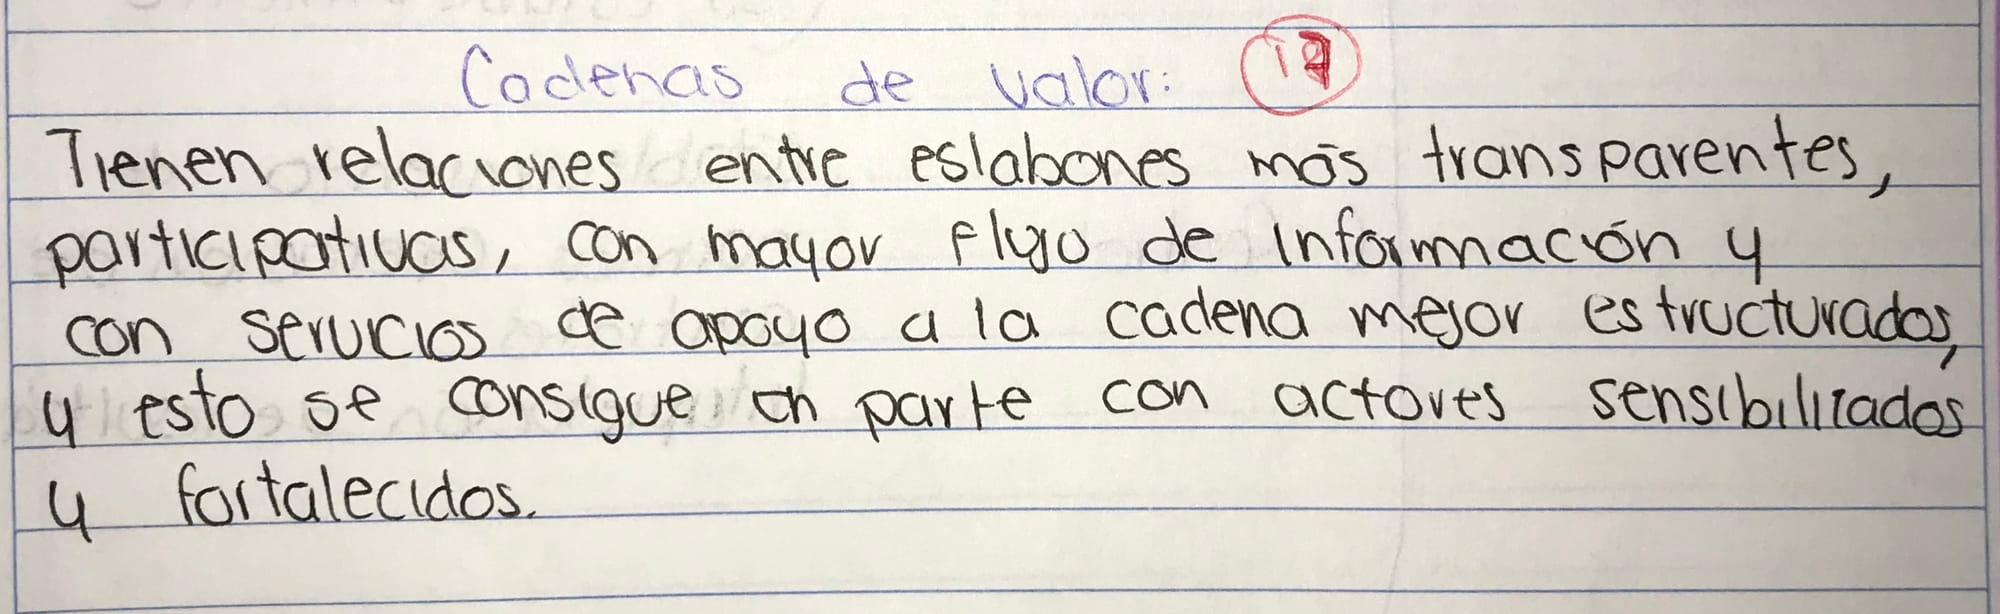 Cadenas de valor: 17
Tienen relaciones entre eslabones más transparentes,
participativas, con mayor flujo de información y
con servicios de apoyo a la cadena mejor estructurados,
y esto se consigue en parte con actores sensibilizados
y fortalecidos.